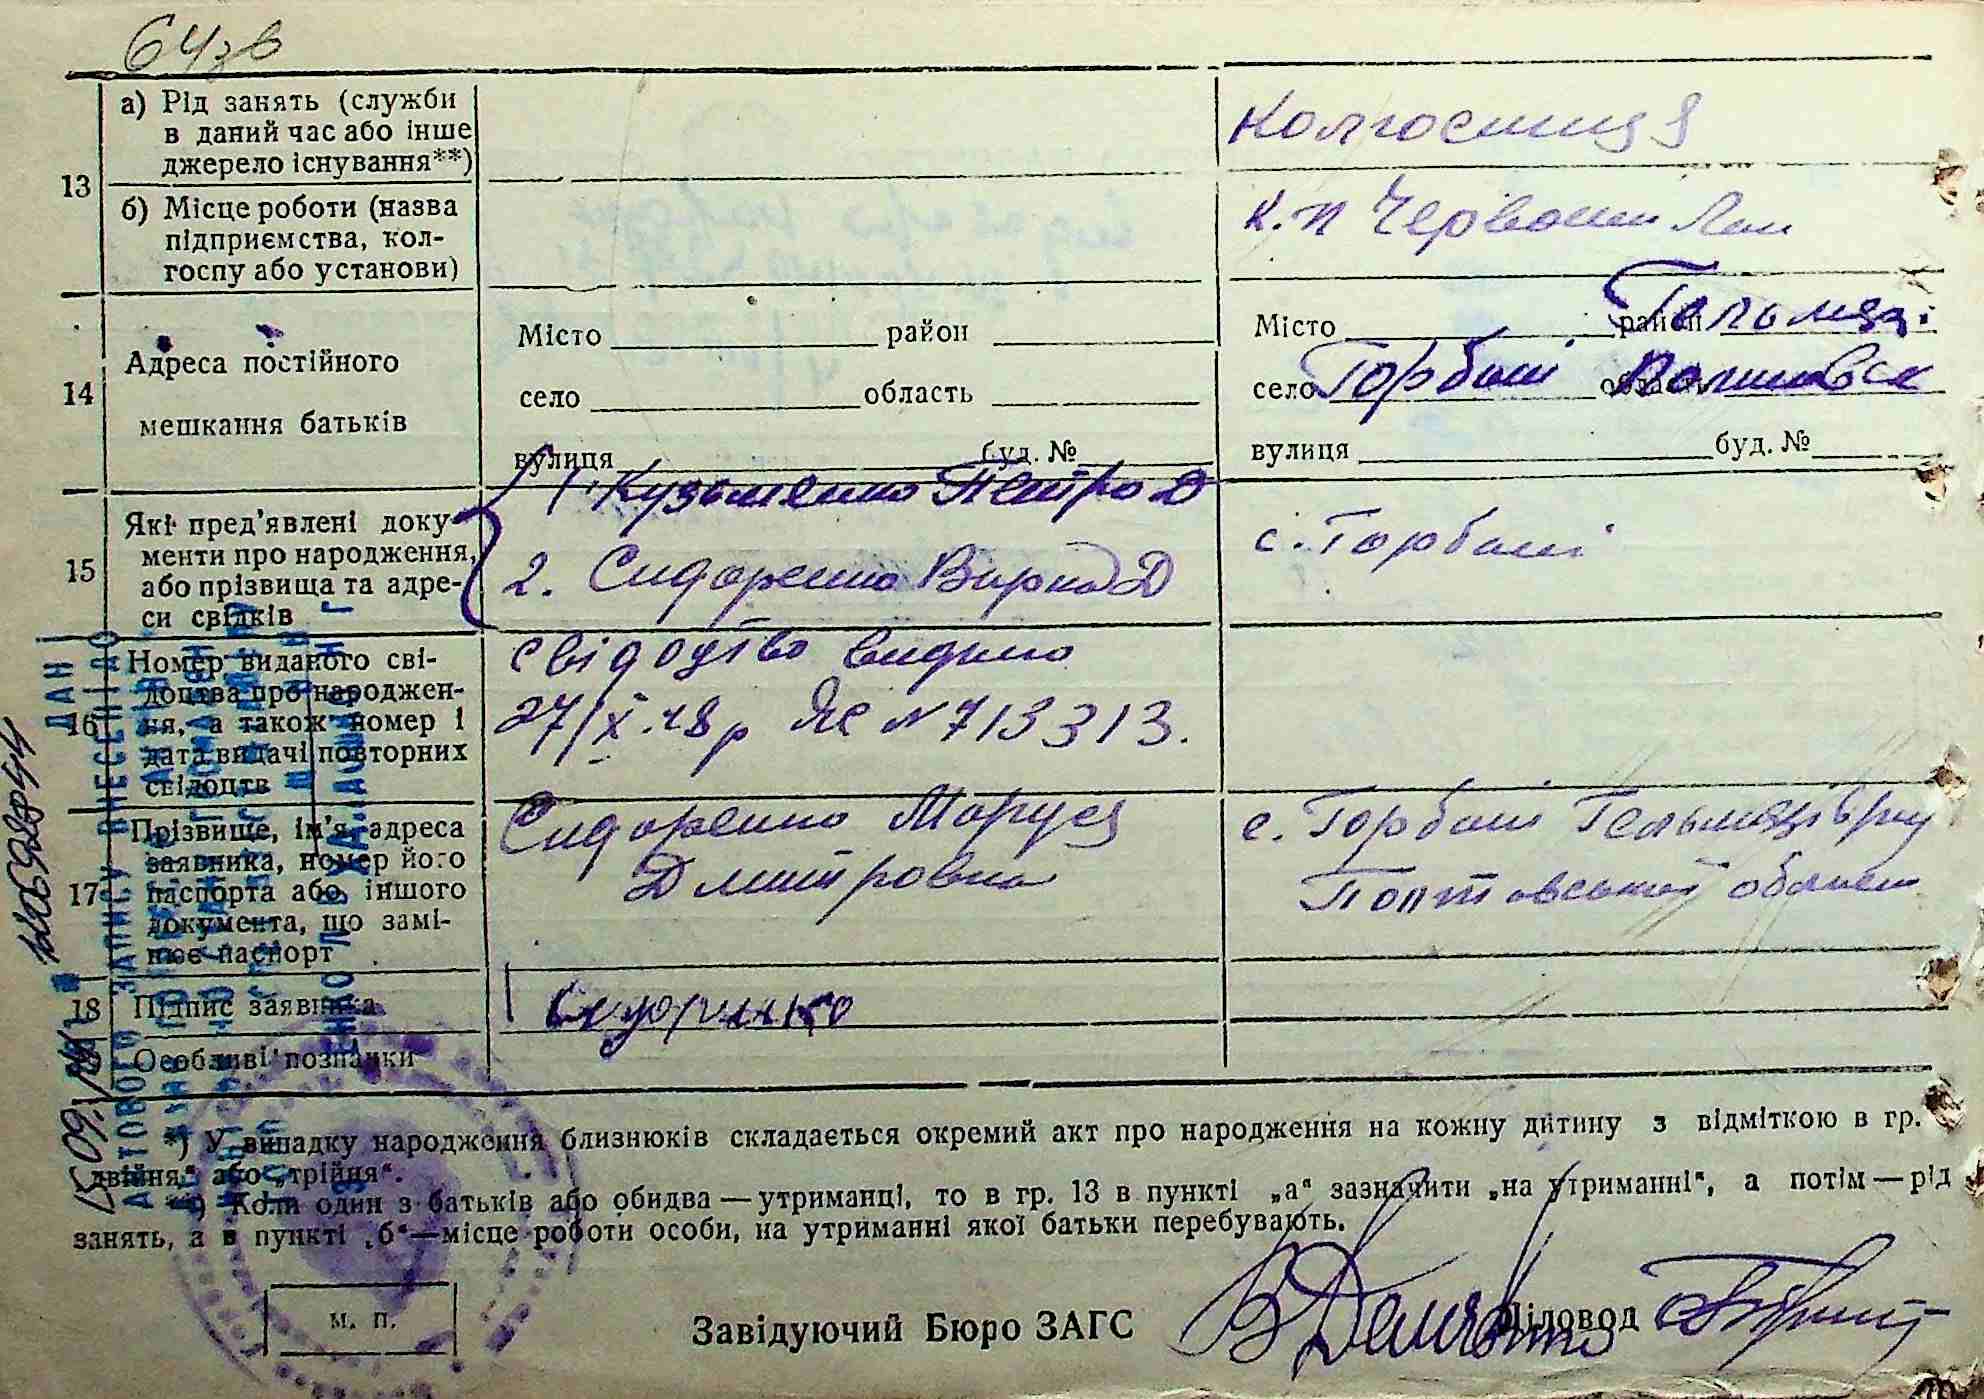 64зв
13
а) Рід занять (служби
в даний час або інше
джерело існування**)
Колгоспниця
б) Місце роботи (назва
підприємства, кол-
госпу або установи)
к.п Червоний Лан
14
Адреса постійного
мешкання батьків
Місто район
село область
вулиця буд. №
Місто район Гельмязі
село Горбані область
вулиця буд. №
15
Які пред'явлені доку-
менти про народження,
або прізвища та адре-
си свідків
1. Кузьменко Петро Д
2. Сидоренко Вирка Д
с. Горбані
16
Номер виданого сві-
доцтва про народжен-
ня, а також номер і
дата видачі повторних
свідоцтв
Свідоцтво видано
27/X.48р ЯЄ N 713313.
17
Прізвище, ім'я, адреса
заявника, номер його
паспорта або іншого
документа, що замі-
нює паспорт
Сидоренко Маруся
Дмитровна
с. Горбані Гельмязів р-ну
Полтовської області
18
Підпис заявника
Сидоринко
19
Особливі познаки
*) У випадку народження близнюків складається окремий акт про народження на кожну дитину з відміткою в гр.
„двійня“ або „трійня“.
**) Коли один з батьків або обидва — утриманці, то в гр. 13 в пункті „а“ зазначити „на утриманні“, а потім — рід
занять, а в пункті „б“—місце роботи особи, на утриманні якої батьки перебувають.
М. П.
Завідуючий Бюро ЗАГС
Діловод